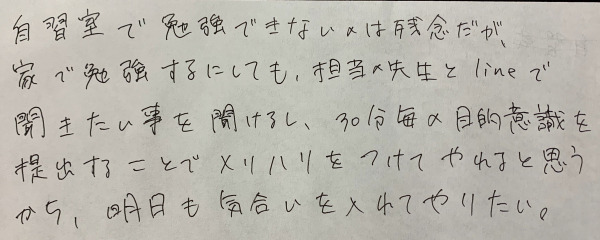 自習室で勉強できないのは残念だが、
家で勉強するにしても、担当の先生とlineで
聞きたい事を聞けるし、30分毎の目的意識を
提出することでメリハリをつけてやれると思う
から、明日も気合いを入れてやりたい。